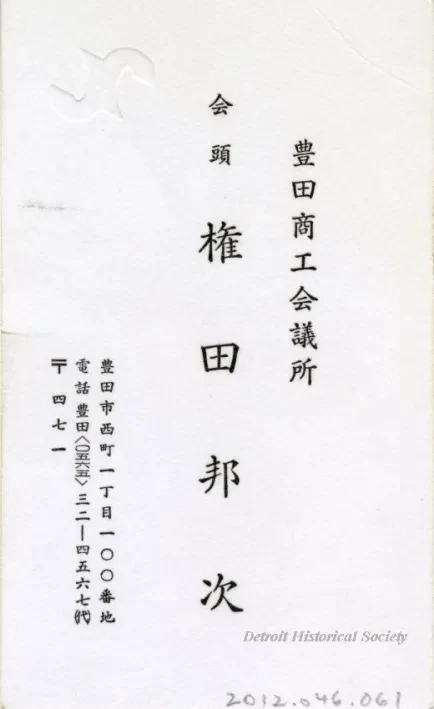 豊田商工会議所
会頭 権田邦次
豊田市西町一丁目一〇〇番地
電話豊田〈〇五六五〉三二―四五六七(代)
〒四七一
Detroit Historical Society
2012.046.061